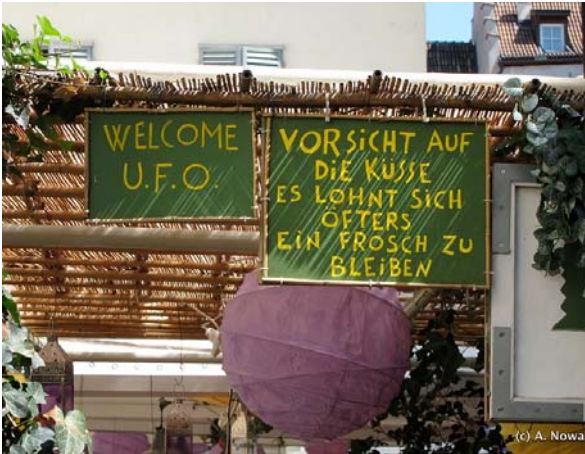 WELCOME
U.F.O.
VORSiCHT AUF
DiE KÜSSE
ES LOHNT SiCH
ÖFTERS
EiN FROSCH ZU
BLEiBEN
(c) A. Nowa